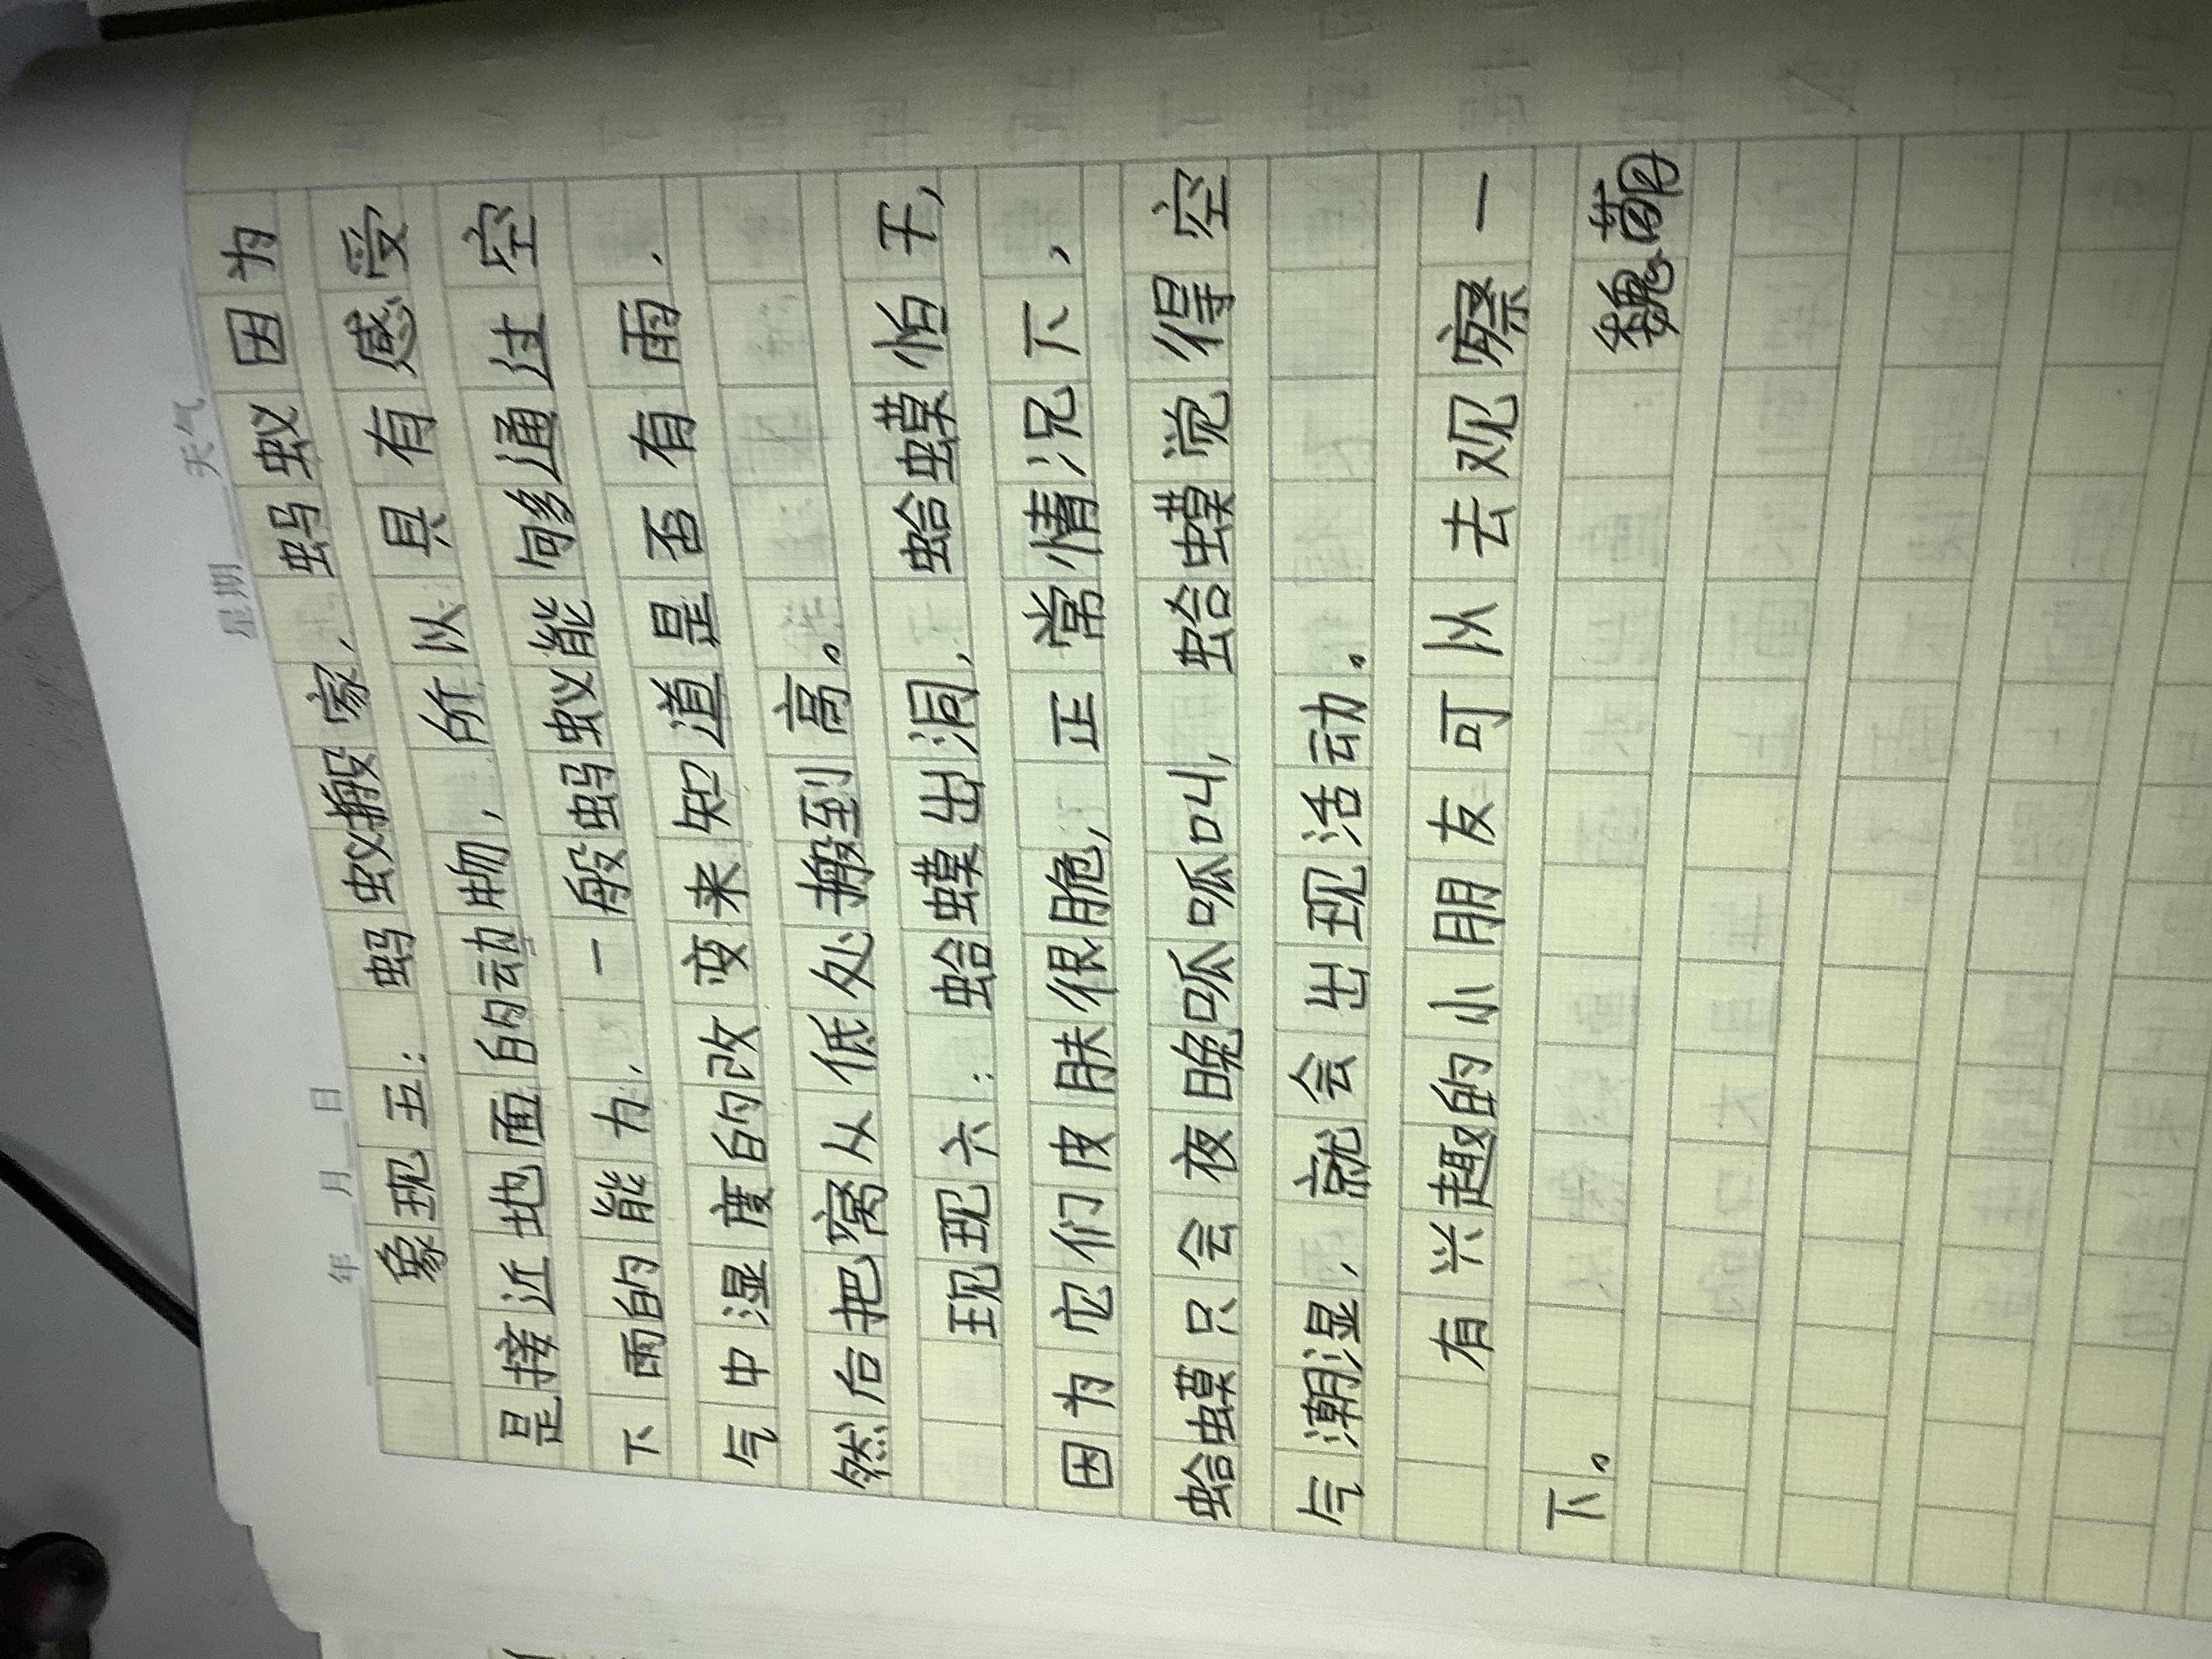 年 月 日 星期 天气
象现五：蚂蚁搬家，蚂蚁因为
是接近地面的动物，所以具有感受
下雨的能力，一般蚂蚁能够通过空
气中湿度的改变来知道是否有雨，
然后把窝从低处搬到高。
现现六：蛤蟆出洞，蛤蟆怕干，
因为它们皮肤很脆，正常情况下，
蛤蟆只会夜晚呱呱叫，蛤蟆觉得空
气潮湿，就会出现活动。
有兴趣的小朋友可以去观察一
下。
魏